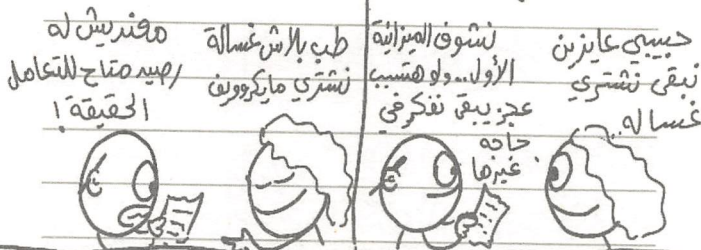 حبيبي عايزين
نبقى نشتري
غسالة..
نشوف الميزانية
الأول.. ولو هتسبب
عجز يبقى نفكر في
حاجه
غيرها
طب بلاش غسالة
نشتري مايكروويف
مفنديش له
رصيد متاح للتعامل
الحقيقة!